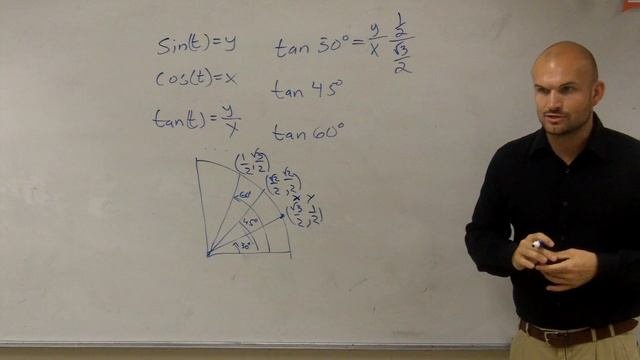 sin(t)=y
cos(t)=x
tan(t)=y/x
tan 30°=y/x (1/2)/(√3/2)
tan 45°
tan 60°
(1/2, √3/2)
(√2/2, √2/2)
x y
(√3/2, 1/2)
60°
45°
30°